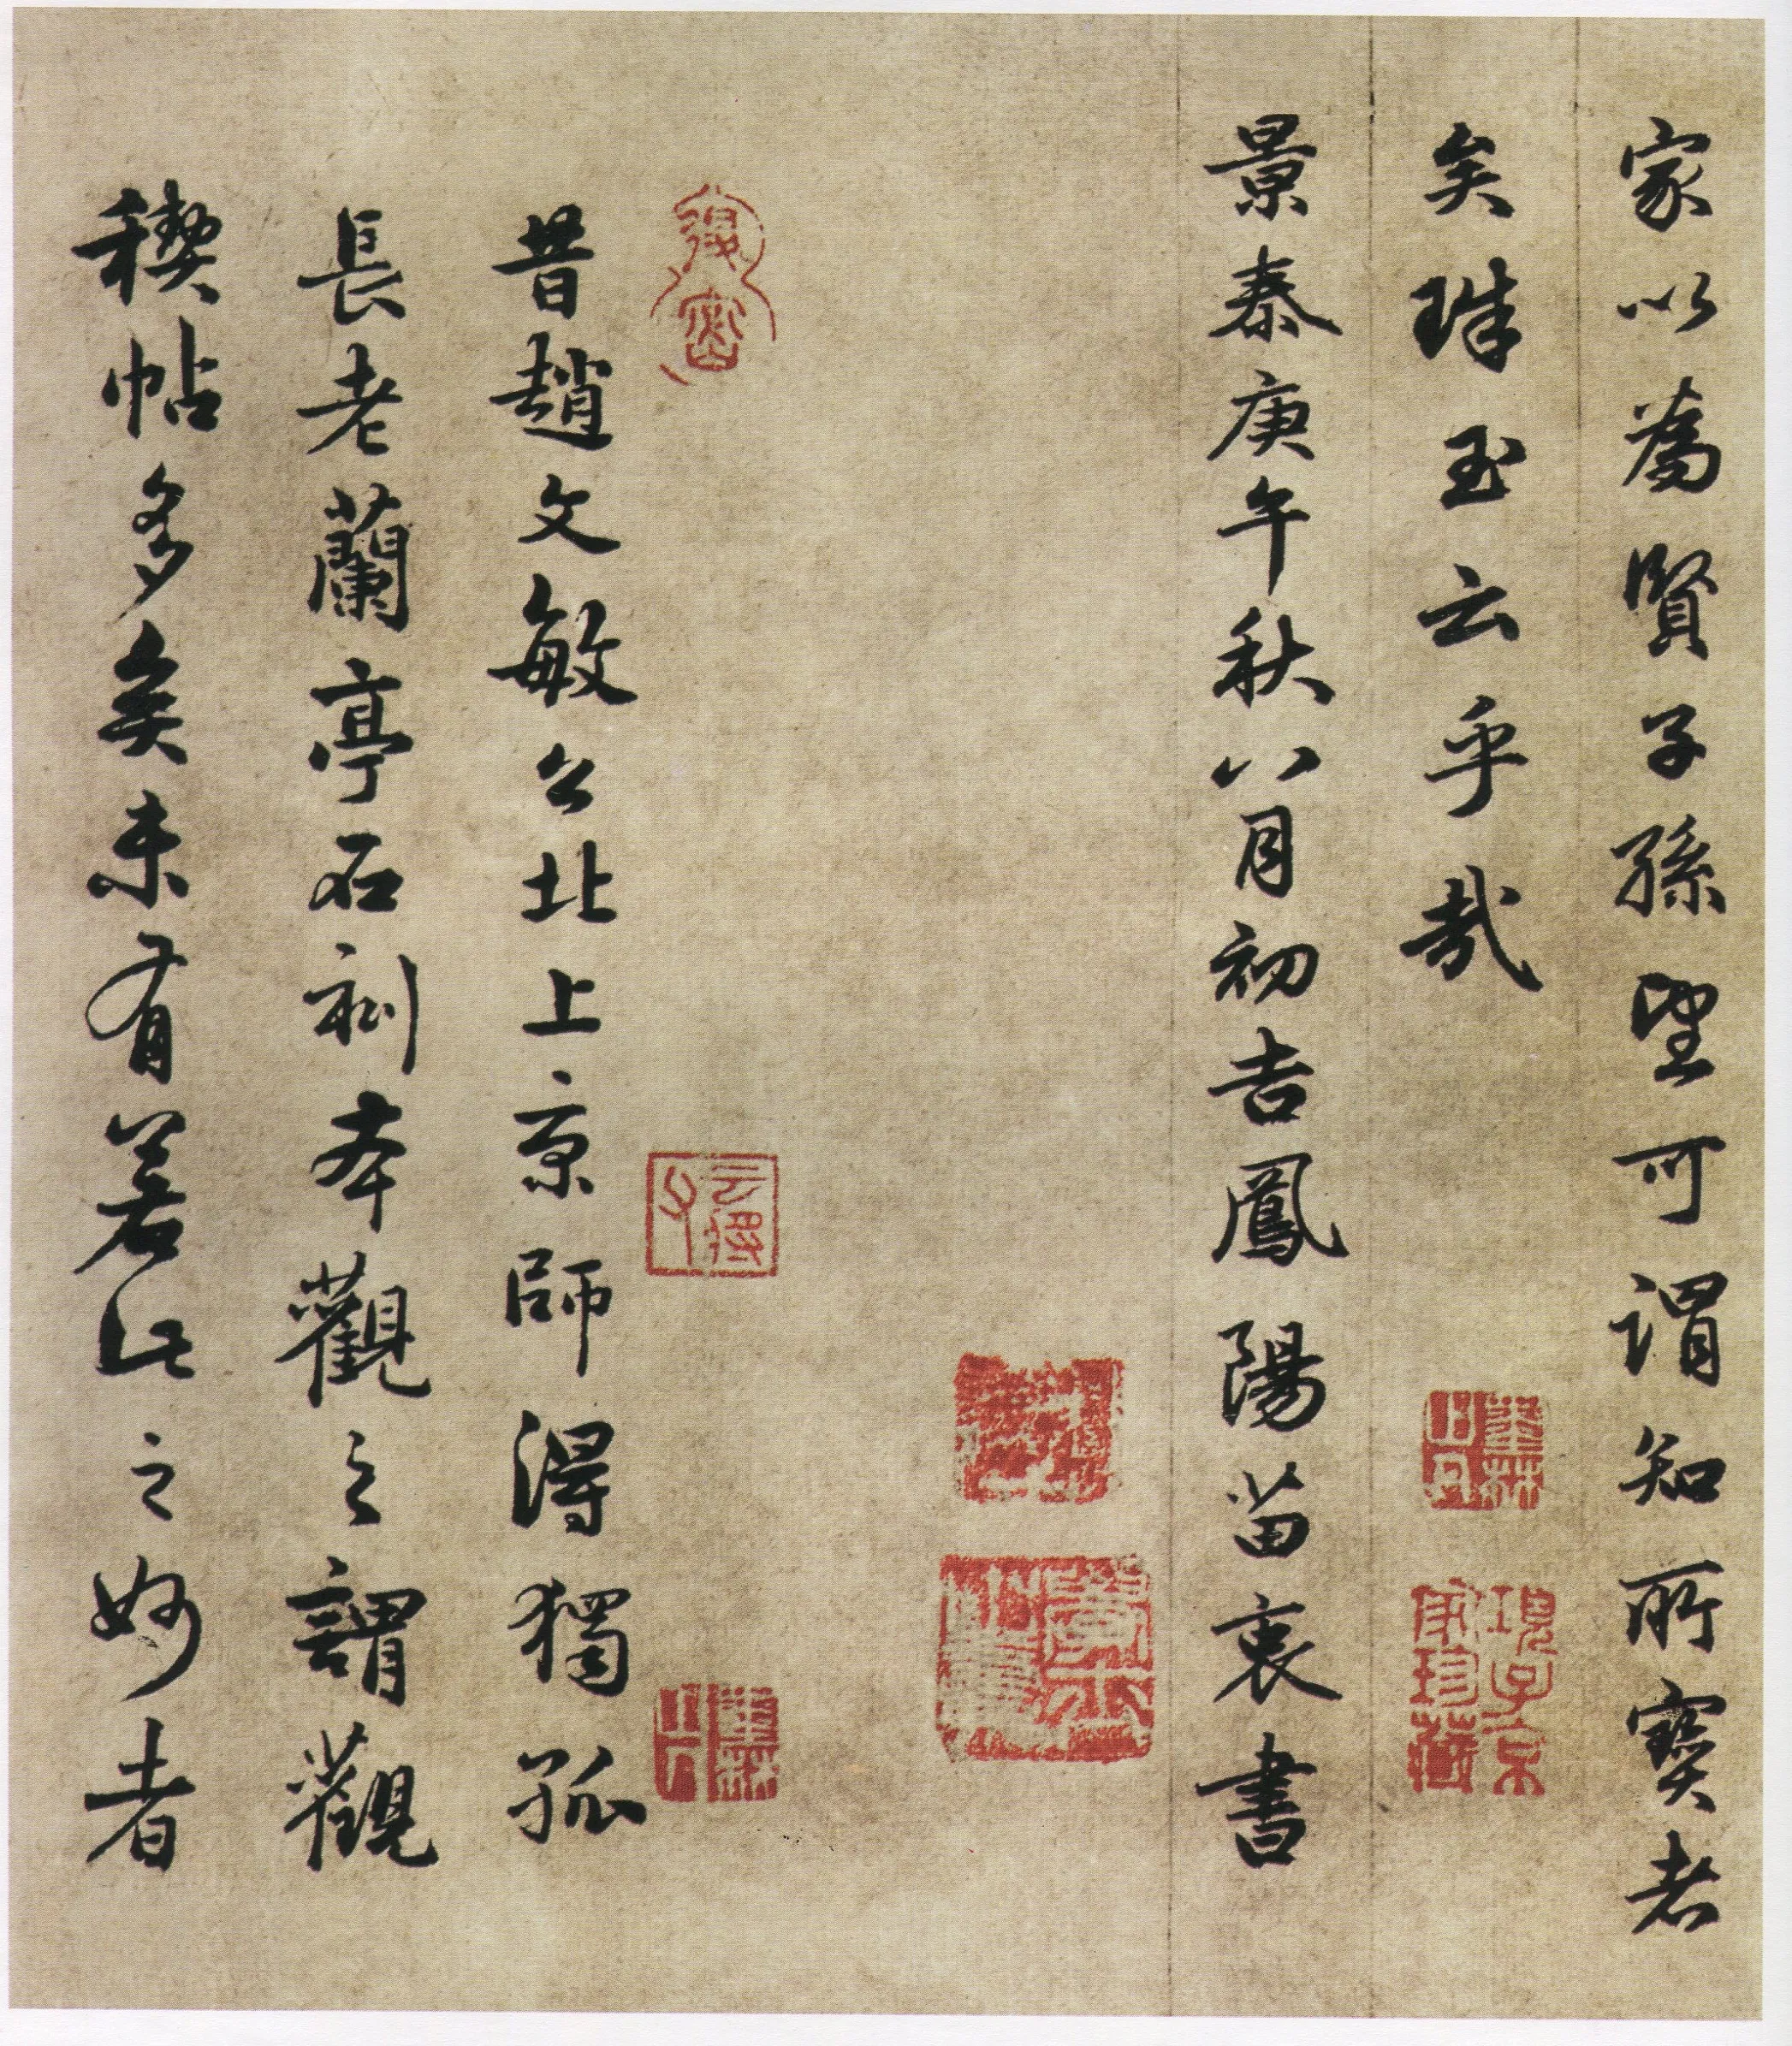 家以為賢子孫望可謂知所寶者
矣珠玉云乎哉
景泰庚午秋八月初吉鳳陽苗衷書
昔趙文敏公北上京師得獨孤
長老蘭亭石刻本觀之謂觀
稧帖多矣未有若此之妙者
項子京家珍藏